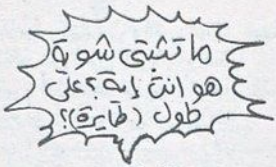 ما تثبتى شوية
هو انتى إية؟ على
طول (طايرة)؟